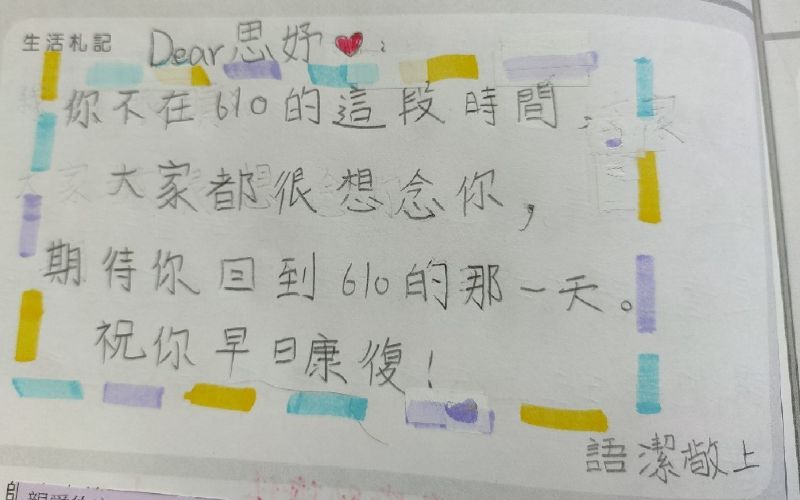 生活札記
Dear思妤❤：
你不在610的這段時間，
大家都很想念你，
期待你回到610的那一天。
祝你早日康復！
語潔敬上